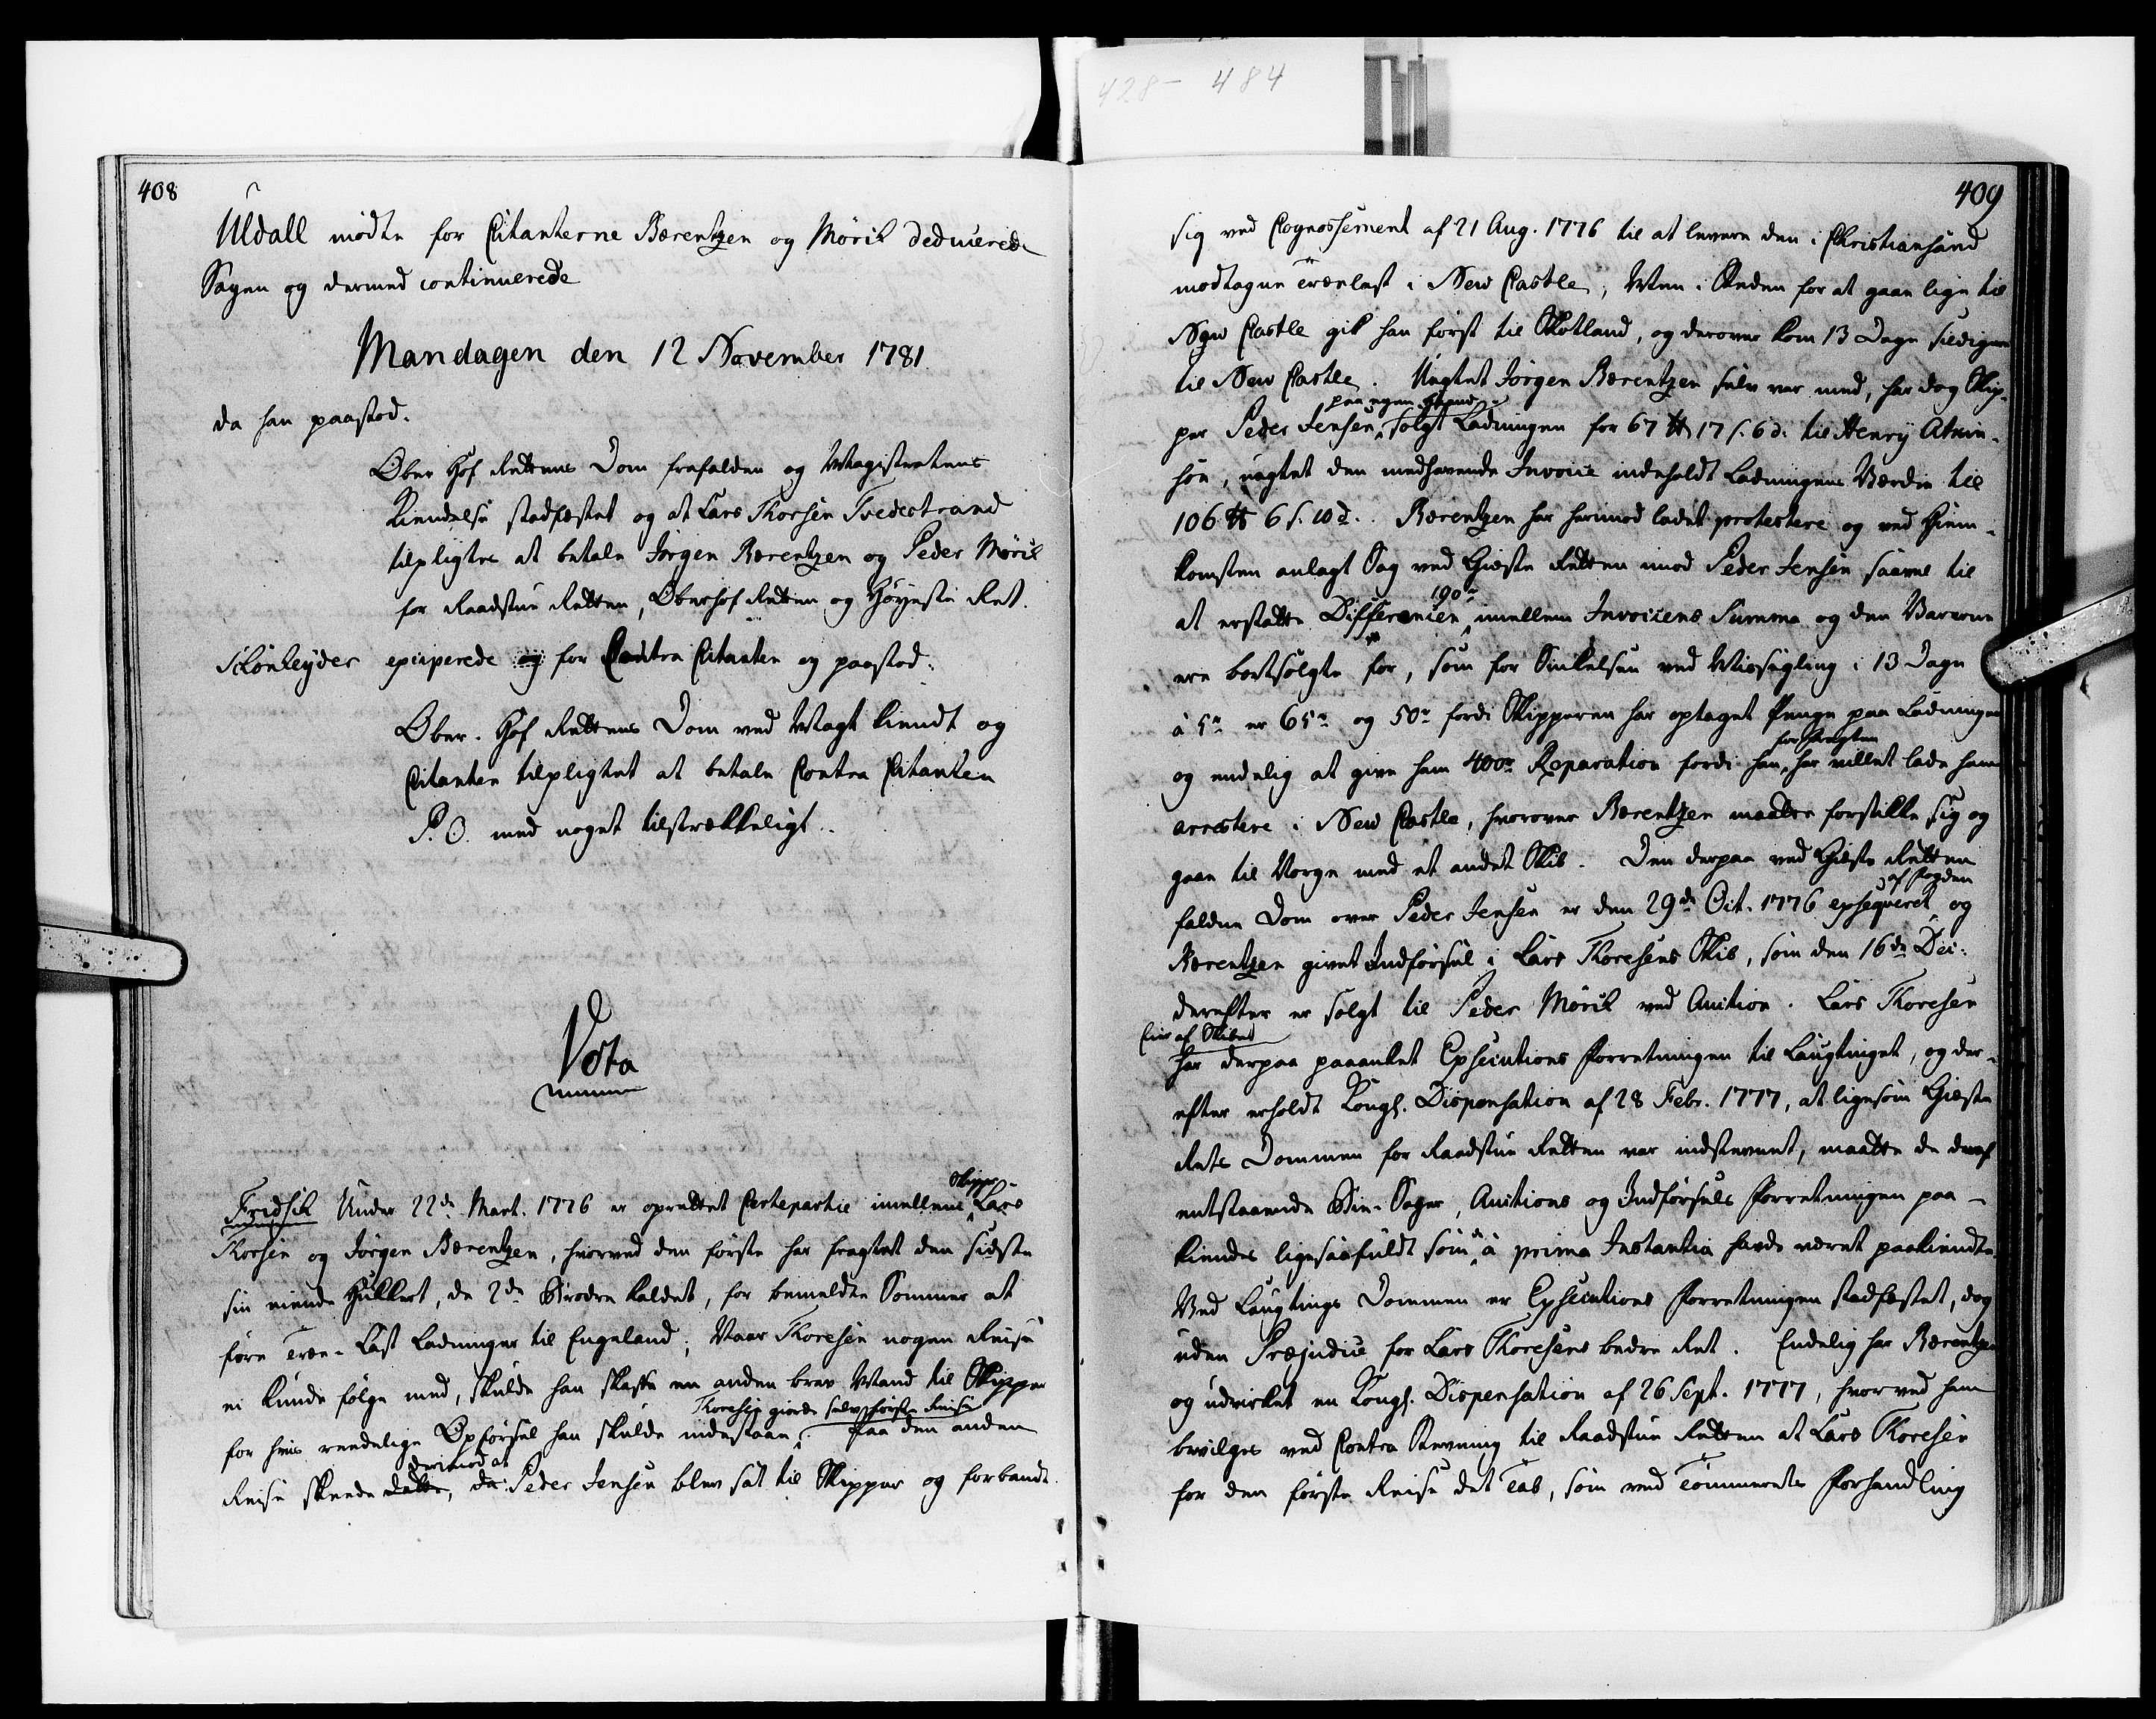 428 - 484
408
Uldall mødte for Citanterne Bærentzen og Mørik deducerede
Sagen og dermed continuerede
Mandagen den 12 November 1781.
da han paastod.
Ober Hof Rettens Dom frafalden og Magistratens
Kiendelse stadfæstet og at Lars Thorsen Tvedestrand
tilpligtes at betale Jørgen Bærentzen og Peder Mørik
for Raadstue Retten, Oberhof Retten og Høyeste Ret.
Schønheyder exciperede og for Contra Citanten og paastod:
Ober-Hof Rettens Dom ved Magt kiendt og
Citanten tilpligtet at betale Contra Citanten
P. O. med noget tilstrækkeligt.
Vota
Skipper
Fridsch Under 22de Mart. 1776 er oprettet Certepartie imellem Lars
Thorsen og Jørgen Bærentzen, hvorved den første har fragtet den sidste
sin eiende Hukkert, de 2de Brødre kaldet, for bemeldte Sommer at
føre Træ-Last Ladninger til Engeland; Naar Thoresen nogen Reise
ei kunde følge med, skulde han skaffe en anden brav Mand til Skipper
Thoresen giorde selv første Reise
for hvis reedelige Opførsel han skulde indestaae. Paa den anden
derimod at
Reise skeede dette, da Peder Jensen blev sat til Skipper og forbandt
409
sig ved Cognossement af 21 Aug. 1776 til at levere den i Christiansand
modtagne Trælast i New Castle; Men i Steden for at gaae lige til
New Castle gik han først til Skotland, og derover kom 13 Dage sildigere
til New Castle. Uagtet Jørgen Bærentzen selv var med, har dog Skip-
paa egen Haand
per Peder Jensen solgt Ladningen for 67 ℔ 17 s. 6 d. til Henry Atkin-
son, uagtet den medhavende Invoice indeholdt Ladningens Værdie til
106 ℔ 6 s. 10 d. Bærentzen har herimod ladet protestere og ved Hiem-
komsten anlagt Sag ved Giæste Retten imod Peder Jensen saavel til
190 rd
at erstatte Differencen imellem Invoicens Summa og den Varerne
ere bortsolgte for, som for Sinkelsen ved Missigling i 13 Dage
à 5 rd er 65 rd og 50 rd fordi Skipperen har optaget Penge paa Ladningen
for Fragten
og endelig at give ham 400 rd Reparation fordi han har villet lade ham
arrestere i New Castle, hvorover Bærentzen maatte forstikke sig og
gaae til Norge med et andet Skib. Den derpaa ved Giæste Retten
af Fogden
faldne Dom over Peder Jensen er den 29de Oct. 1776 exseqveret og
Bærentzen givet Indførsel i Lars Thoresens Skib, som den 16de Dec:
derefter er solgt til Peder Mørik ved Auction. Lars Thoresen
Eier af Skibet
har derpaa paaanket Exsecutions Forretningen til Laugtinget, og der-
efter erholdt Kongl. Dispensation af 28 Febr. 1777, at ligesom Giæste
Rets Dommen for Raadstue Retten var indstevnet, maatte de deraf
entstaaende Bie-Sager, Auctions og Indførsels Forretningen paa-
kiendes ligesaafuldt som de à prima Instantia havde været paakiendte.
Ved Laugtings Dommen er Exsecutions Forretningen stadfæstet, dog
uden Præjudice for Lars Thoresens bedre Ret. Endelig har Bærentzen
og udvirket en Kongl. Dispensation af 26 Sept. 1777, hvorved ham
bevilges ved Contra Stevning til Raadstue Retten at Lars Thoresen
for den første Reise det Tab, som ved Tømmerets Forhandling